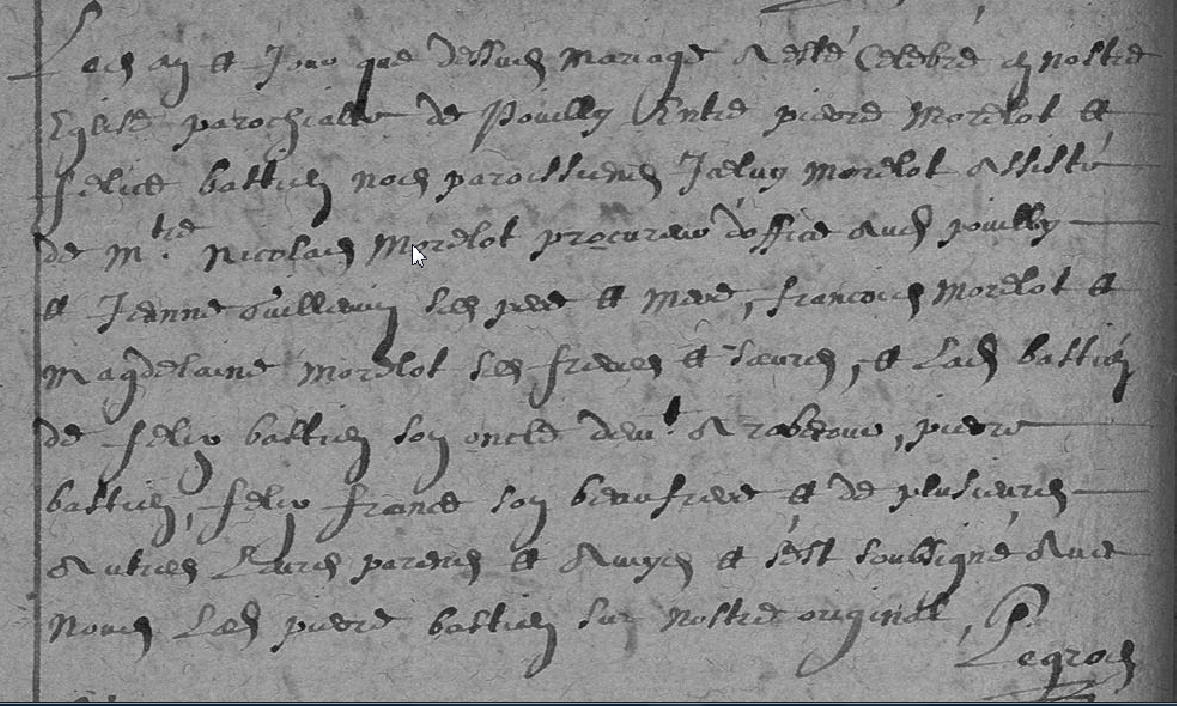 Lesd an et Jour que dessus mariage a esté Celebré en nostre
Eglise parochialle de Pouilly Entre pierre Morelot et
felice bastien nos paroissiens Iceluy morelot assisté
de mtre Nicolas Morelot procureur d'office aud pouilly
et Jeanne Guillemin ses pere et mere, francois Morelot et
magdelaine morelot ses freres et sœurs, et Lad bastien
de felix bastien son oncle demt a, pierre
bastien, felix france son beaufrere et de plusieurs
autres Leurs parens et amys et s'est soubsigné avec
nous Led pierre bastien sur nostre original, P.
Legros